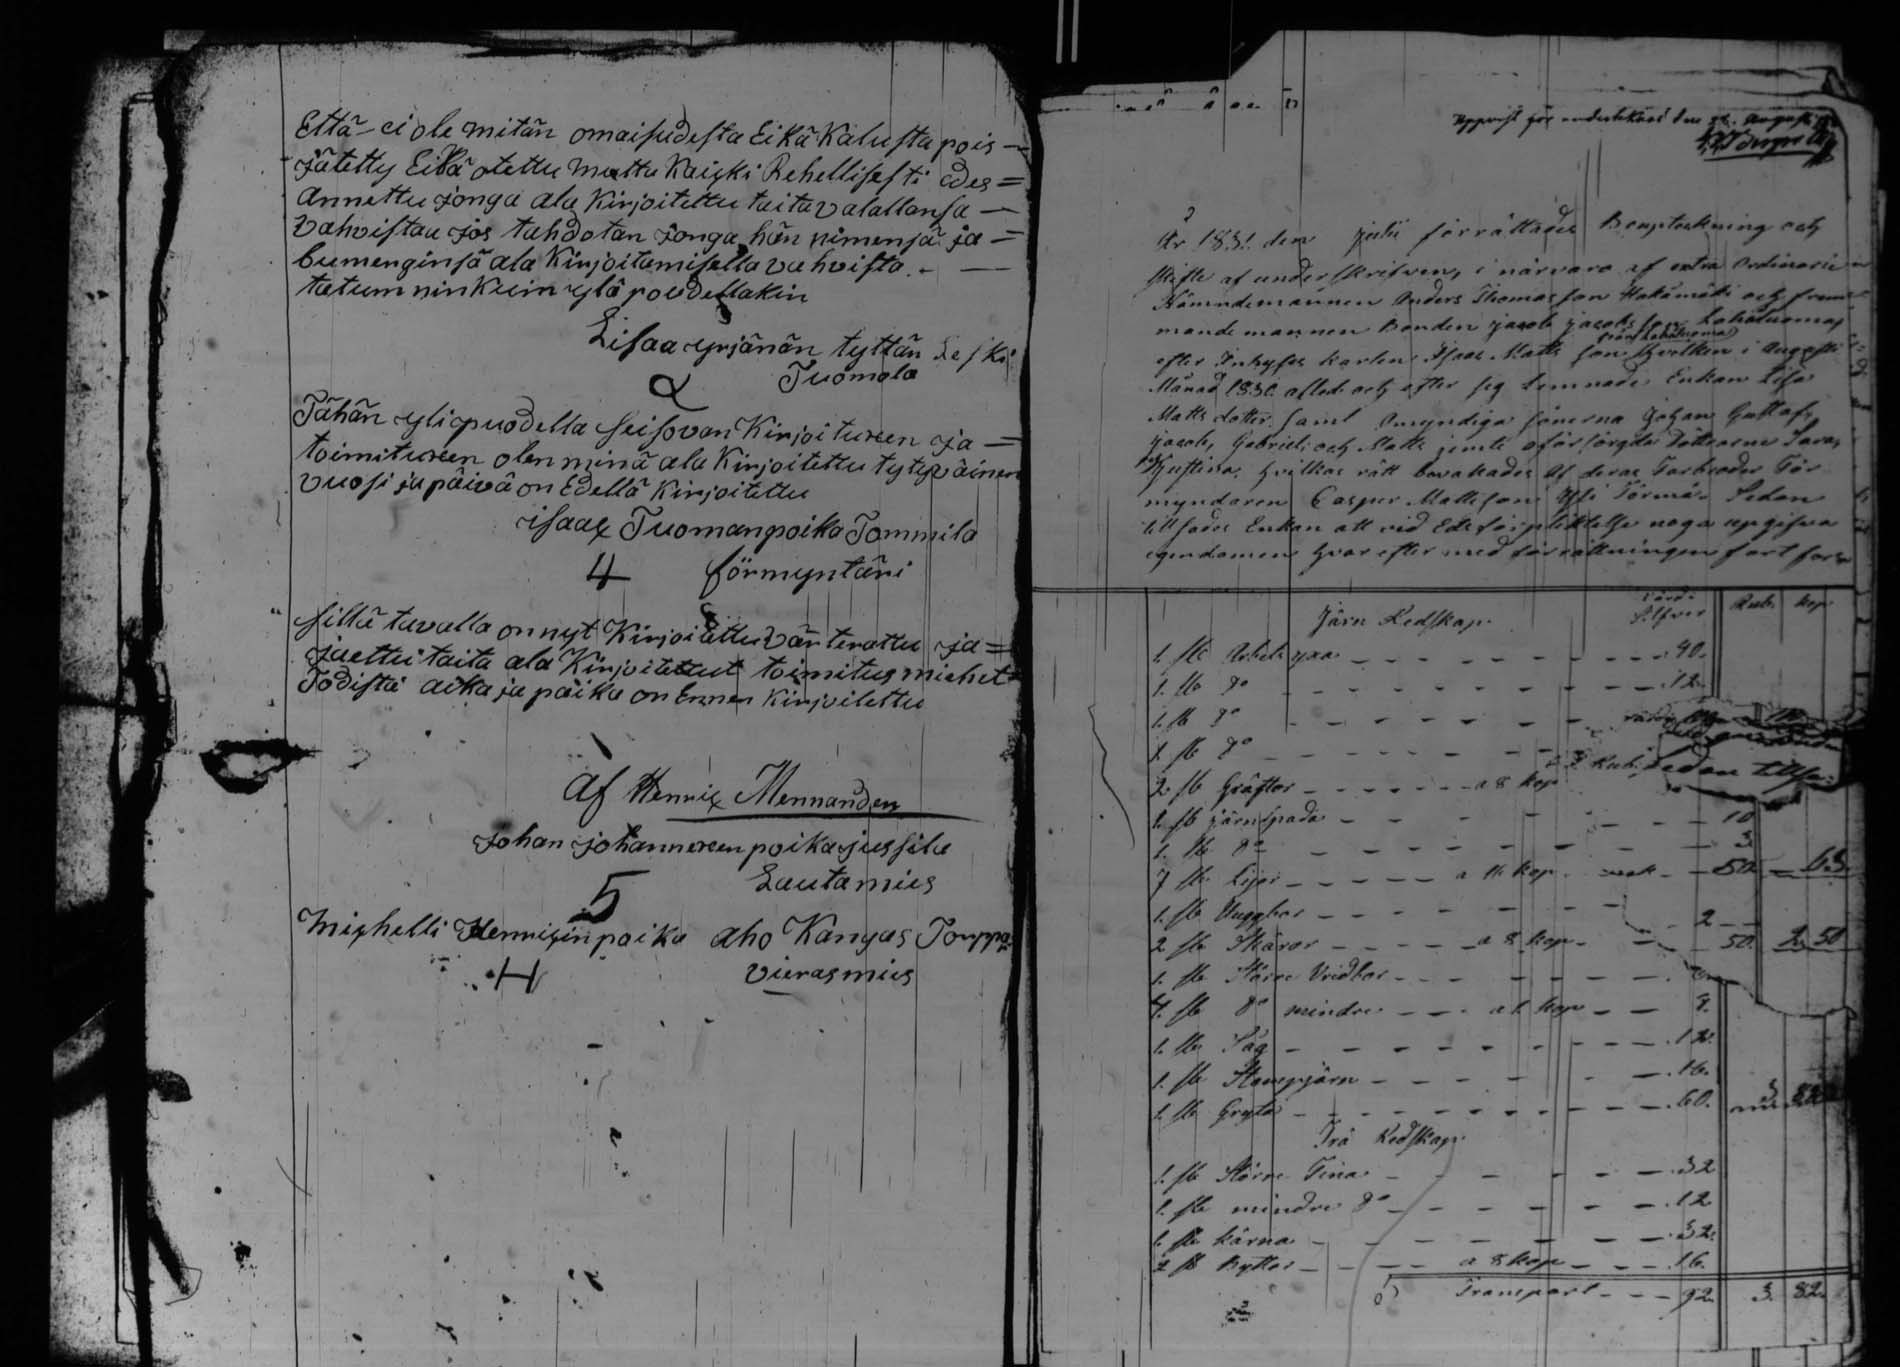 Että ei ole mitän omaisudesta Eikä Kalusta pois —
jätetty Eikä otettu Muttu Kaiҳki Rehellisesti edes =
Annettu jonga ala Kirjoitettu taita valallansa —
Vahvistaa jos tahdotan jonga hän nimensä ja =
bumenginsä ala Kirjoitamisella vahvista . —
tutum ninkuin ylä poudellakin
Lisaa yrjänän tyttän Leski
Tuomala
Tähän yli puodella seisovan Kirjoituxen ja =
toimituxen olen minä ala Kirjoitettu tytyväinen
vuosi ja päivä on Edellä Kirjoitettu
isaax Tuomanpoika Tommila
4 förmyntäri
sillä tavalla on nyt Kirjoitettu värterattu ja =
jaettu taita ala Kirjoitettut toimitus miehet
Todista aika ja paika on Ennen Kirjoitettu
Af Henrix Mennanden
Johan johannexen poika jussila
5 Lautamies
Mighelli Henrixin poika aho Kangas Jouppi
H vieras mies
Uppvist för undertecknad den Augusti
År 1831. den Julii förrättades Bouptekning och
skifte af underskrifven, i närvaro af extra Ordinarie
Nämndemannen Anders Thomasson Hakamäki och främ-
mande mannen Bonden Jacob Jacobsson Lahdtuoma,
från Lahdtuoma
efter Inhyses karlen Isaac Matts son hvilken i Augusti
Månad 1830. afled och efter sig lemnade Enkan Lisa
Matts dotter samt Omyndiga sönerna Johan Gustaf,
Jacob, Gabriel och Matts jemte oförsörgda Döttrarne Sara,
Justina, hvilkas rätt bevakades af deras Farbroder För-
myndaren Casper Mattsson Yli Törmä. Sedan
tillsades Enkan att vid Edsförpliktelse noga uppgifva
egendomen hvar efter med förrättningen fort for
Järn Redskap. värde Silfver Rub. kop
1. st. Arbets yxa — — — 40.
1. st. Do — — — 12.
1. st. Do — — —
1. st. Do — — —
sedan tillsa
2 st Gräftor — — — a 8 kop
1. st järnspada — — — 10
1. st. Do — — — 3.
7 st. Lijor — — — a 16 kop — 50. 63
1. st. Huggbar — — — 2
2 st. Skäror — — — a 8 kop — 50. 2. 50
1. st. Större Vridbar — — —
4. st. Do mindre — — a 1 kop — — 4.
1. st. Såg — — — 12.
1. st. Stampjärn — — — 16.
1. st. Gryta — — — 60. 3. 82
Trä Redskap.
1. st. Större Tina — — — 32
1. st. mindre Do — — — 12
1. st. kärna — — — 32.
2 st Byttor — — — a 8 kop — — 16.
Transport — — — 92. 3. 82.